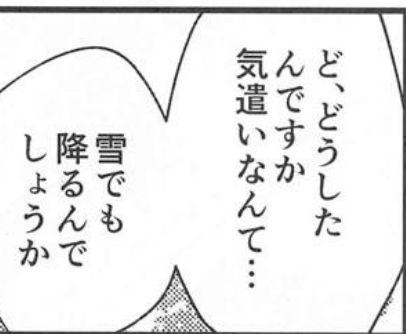 ど、どうした
んですか
気遣いなんて…
雪でも
降るんで
しょうか